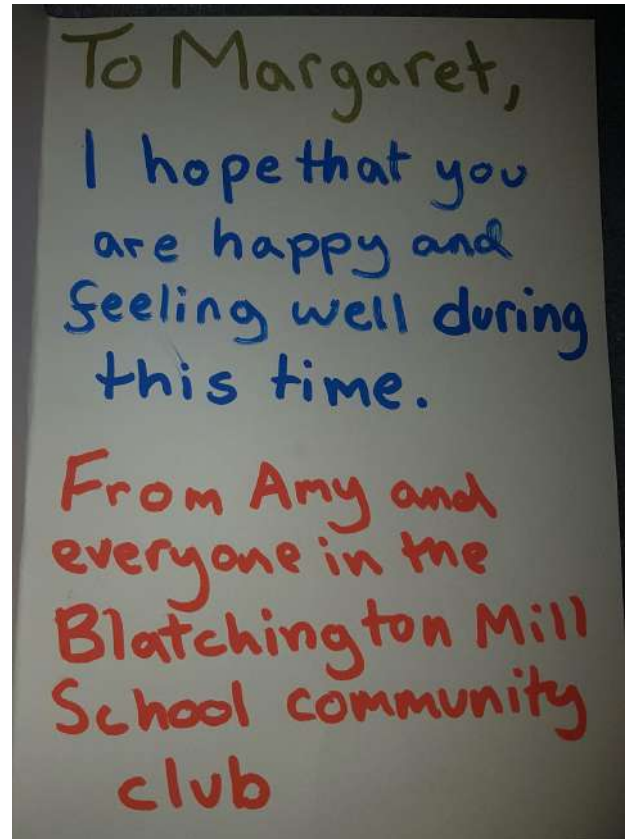 To Margaret,
I hope that you
are happy and
feeling well during
this time.
From Amy and
everyone in the
Blatchington Mill
School community
club